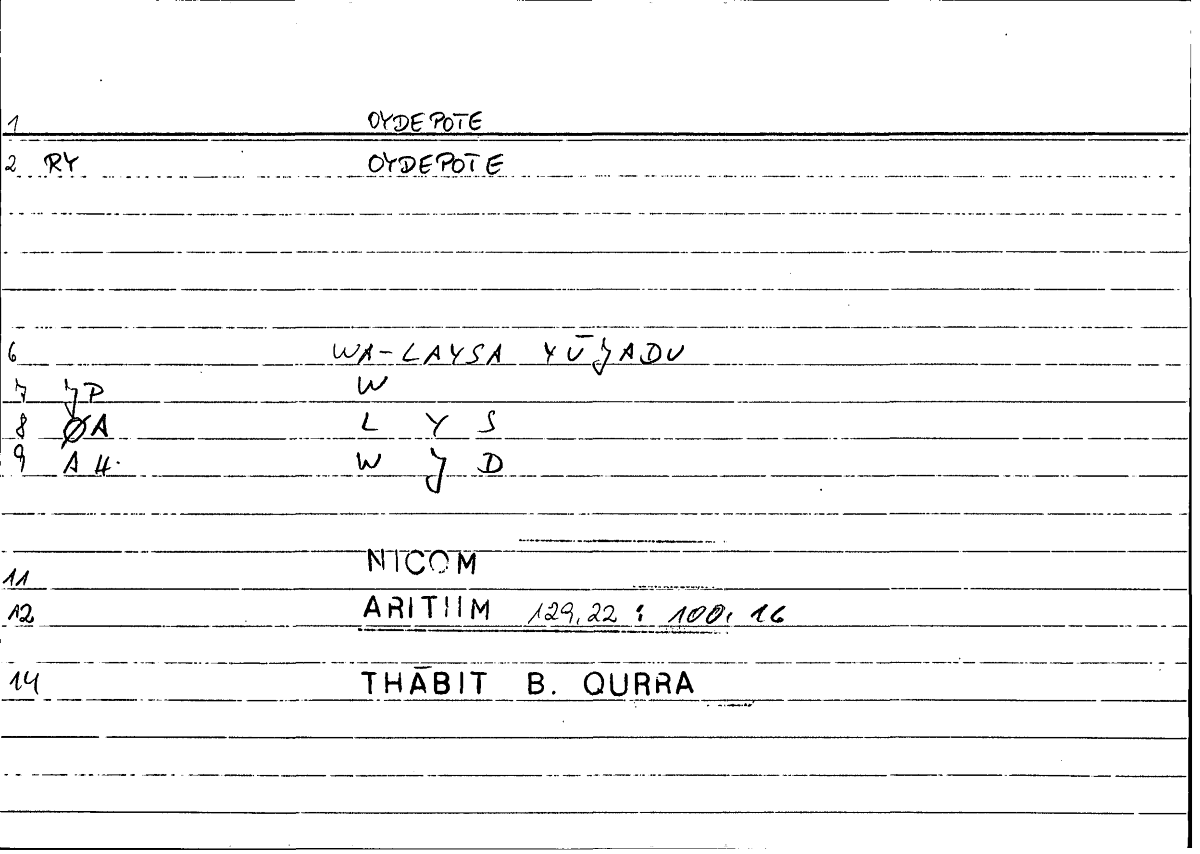 1 OYDEPOTE
2 RY OYDEPOTE
6 WA-LAYSA YŪJADU
7 JP W
8 ØA L Y S
9 A4. W J D
11 NICOM
12 ARITHM 129,22 : 100, 16
14 THĀBIT B. QURRA